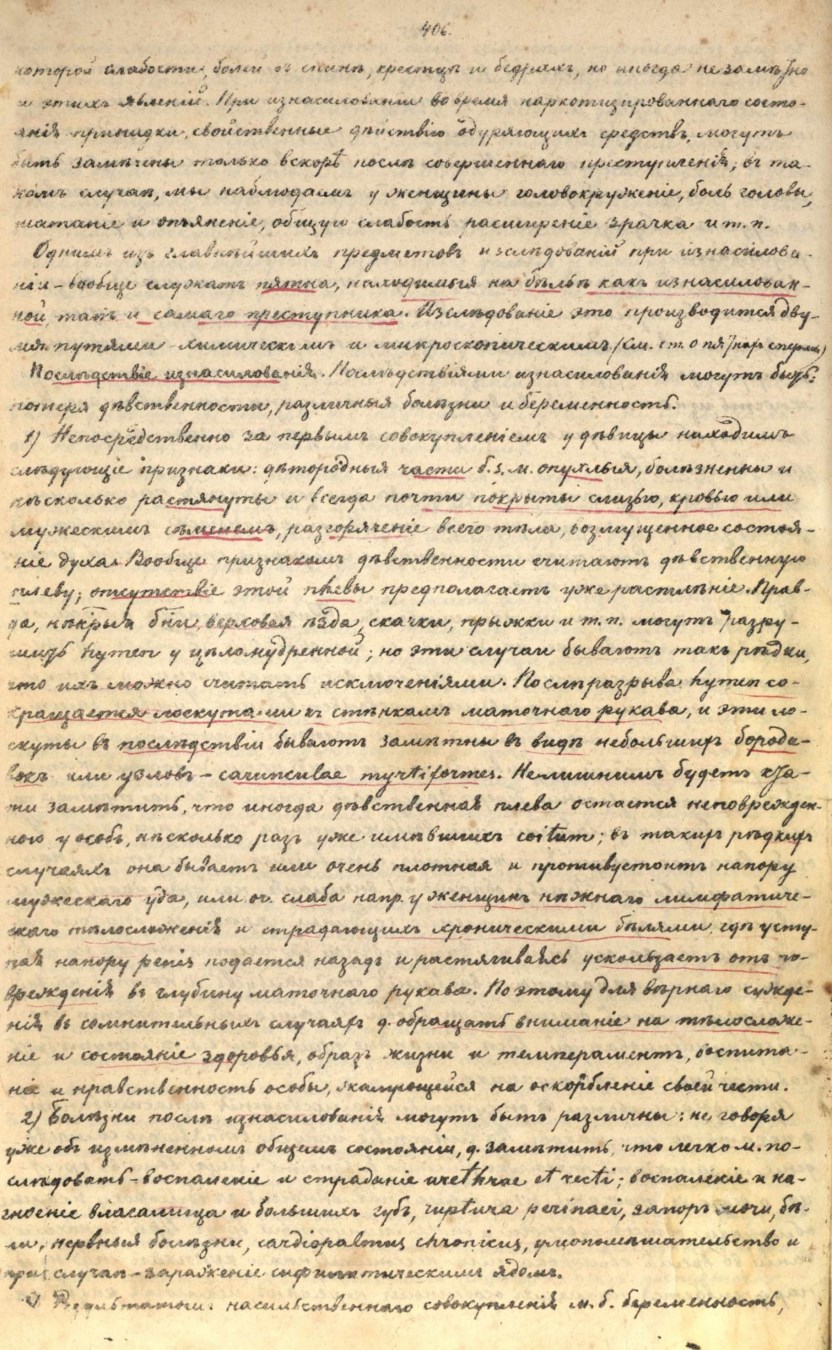 406.
которой слабости, боли въ спинѣ, крестцѣ и бедрахъ, но иногда не замѣтно
и этихъ явленій. При изнасиловании во время наркотизированнаго состо-
янія признаки, свойственные дѣйствію одуряющихъ средствъ, могутъ
быть замѣчены только вскорѣ послѣ совершеннаго преступленія; въ та-
комъ случаѣ, мы наблюдаемъ у женщины головокруженіе, боль головы,
шатаніе и опьяненіе, общую слабость, расширеніе зрачка и т. п.
Однимъ изъ главнѣйшихъ предметовъ изслѣдованій при изнасилова-
ніи - вообще служатъ пятна, находимыя на бѣльѣ какъ изнасилован-
ной, такъ и самаго преступника. Изслѣдованіе это производится дву-
мя путями - химическимъ и микроскопическимъ (См. ст. о
Послѣдствіе изнасилованія. Послѣдствіями изнасилованія могутъ быть:
потеря дѣвственности, различныя болѣзни и беременность.
1) Непосредственно за первымъ совокупленіемъ у дѣвицы находимъ
слѣдующіе признаки: дѣтородныя части б. з. м. опухлыя, болѣзненны и
нѣсколько растянуты и всегда почти покрыты слизью, кровью или
мужескимъ сѣменемъ, разгоряченіе всего тѣла, возмущенное состоя-
ніе духа. Вообще признакомъ дѣвственности считаютъ дѣвственную
плеву; отсутствіе этой плевы предполагаетъ уже растлѣніе. Прав-
да, верховая ѣзда, скачки, прыжки и т. п. могутъ разру-
шить hymen у цѣломудренной; но эти случаи бываютъ такъ рѣдки,
что ихъ можно считать исключеніями. Послѣ разрыва hymen со-
кращается лоскутами къ стѣнкамъ маточнаго рукава, и эти ло-
скуты въ послѣдствіи бываютъ замѣтны въ видѣ небольшихъ борода-
вокъ или узловъ - carunculae myrtiformes. Нелишнимъ будетъ кста-
ти замѣтить, что иногда дѣвственная плева остается неповрежден-
ною у особъ, нѣсколько разъ уже имѣвшихъ coitum; въ такихъ рѣдкихъ
случаяхъ она бываетъ или очень плотная и противустоитъ напору
мужескаго уда, или оч. слаба напр. у женщинъ нѣжнаго лимфатиче-
скаго тѣлосложенія и страдающихъ хроническими бѣлями, гдѣ усту-
пая напору penis подается назадъ и растягиваясь ускользаетъ отъ по-
врежденія въ глубину маточнаго рукава. Поэтому для вѣрнаго сужде-
нія въ сомнительныхъ случаяхъ д. обращать вниманіе на тѣлосложе-
ніе и состояніе здоровья, образъ жизни и темпераментъ, воспита-
ніе и нравственность особы, жалующейся на оскорбленіе своей чести.
2) Болѣзни послѣ изнасилованія могутъ быть различны: не говоря
уже объ измѣненномъ общемъ состояніи, д. замѣтить, что легко м. по-
слѣдовать - воспаленіе и страданіе urethrae et recti; воспаленіе и на-
гноеніе влагалища и большихъ губъ, ruptura perinaei, запоръ мочи, бѣ-
ли, нервныя болѣзни, cardiopalmus chronicus, умопомѣшательство и
при случаѣ - зараженіе сифилитическимъ ядомъ.
3) Результатомъ насильственнаго совокупленія м. б. беременность,